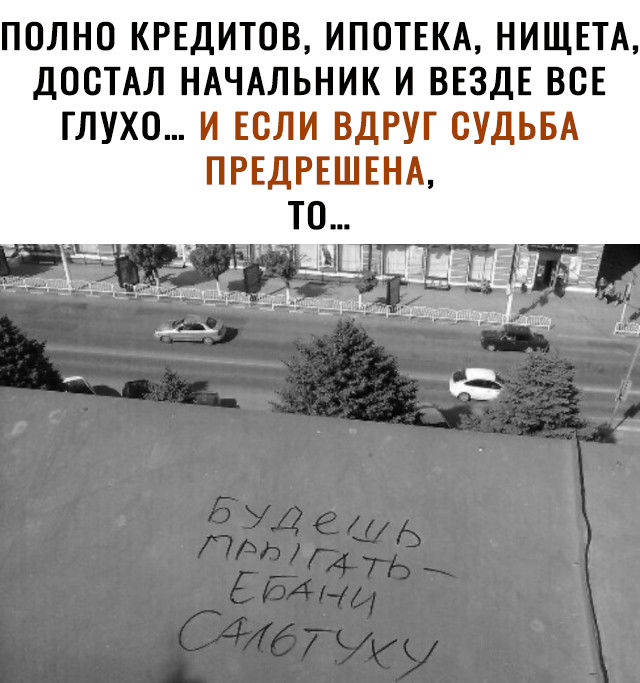 ПОЛНО КРЕДИТОВ, ИПОТЕКА, НИЩЕТА,
ДОСТАЛ НАЧАЛЬНИК И ВЕЗДЕ ВСЕ
ГЛУХО... И ЕСЛИ ВДРУГ СУДЬБА
ПРЕДРЕШЕНА,
ТО...
БУДЕШЬ
ПРЫГАТЬ –
ЕБАНИ
САЛЬТУХУ